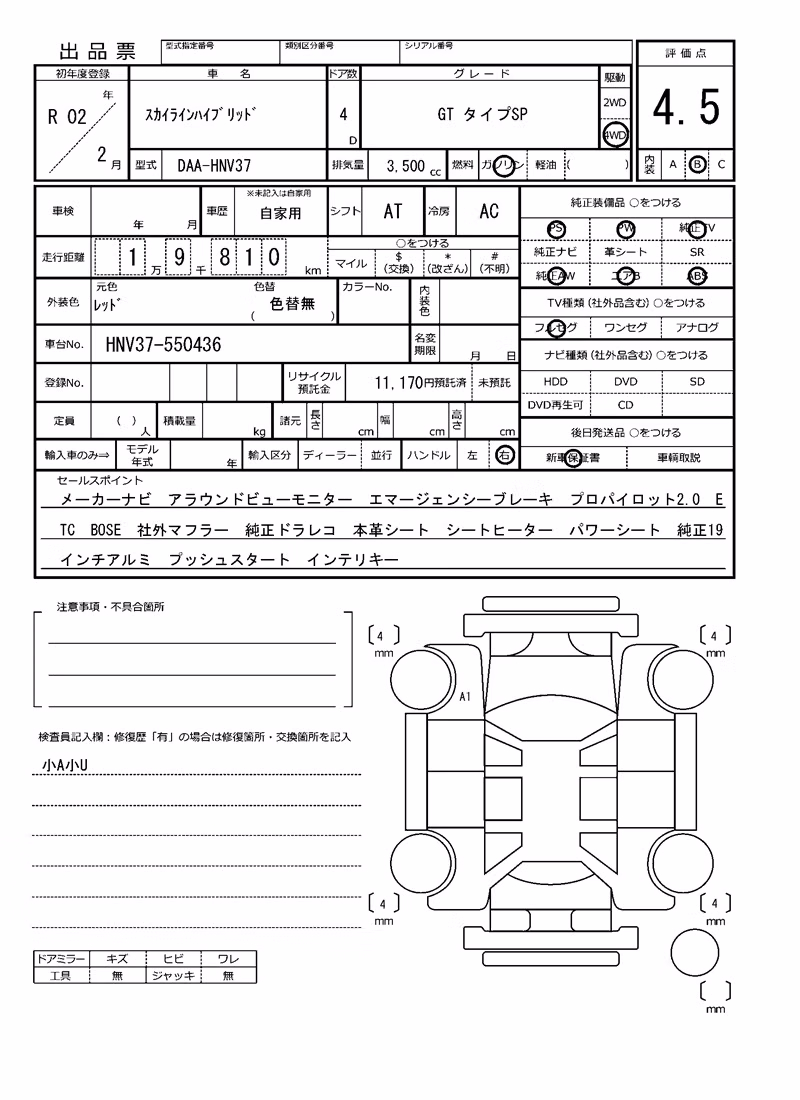 出品票
型式指定番号 類別区分番号 シリアル番号
評価点
初年度登録 車名 ドア数 グレード 駆動
R 02 年 2 月 スカイラインハイブリッド 4 D GT タイプSP 2WD 4WD
4.5
型式 DAA-HNV37 排気量 3,500 cc 燃料 ガソリン 軽油 ( ) 内装 A B C
車検 年 月 車歴 ※未記入は自家用 自家用 シフト AT 冷房 AC
純正装備品 ○をつける
PS PW 純正TV
走行距離 1 万 9 千 8 1 0 km
○をつける
マイル $(交換) *(改ざん) #(不明)
純正ナビ 革シート SR
純正AW エアB ABS
外装色 元色 レッド 色替 ( 色替無 ) カラーNo. 内装色
TV種類(社外品含む)○をつける
フルセグ ワンセグ アナログ
車台No. HNV37-550436 名変期限 月 日
ナビ種類(社外品含む)○をつける
登録No. リサイクル預託金 11,170円預託済 未預託
HDD DVD SD
DVD再生可 CD
定員 ( ) 人 積載量 kg 諸元 長さ cm 幅 cm 高さ cm
後日発送品 ○をつける
輸入車のみ⇒ モデル年式 年 輸入区分 ディーラー 並行 ハンドル 左 右
新車保証書 車輌取説
セールスポイント
メーカーナビ アラウンドビューモニター エマージェンシーブレーキ プロパイロット2.0 E
TC BOSE 社外マフラー 純正ドラレコ 本革シート シートヒーター パワーシート 純正19
インチアルミ プッシュスタート インテリキー
注意事項・不具合箇所
検査員記入欄:修復歴「有」の場合は修復箇所・交換箇所を記入
小A小U
ドアミラー キズ ヒビ ワレ
工具 無 ジャッキ 無
[4] mm
[4] mm
A1
[4] mm
[4] mm
[ ] mm